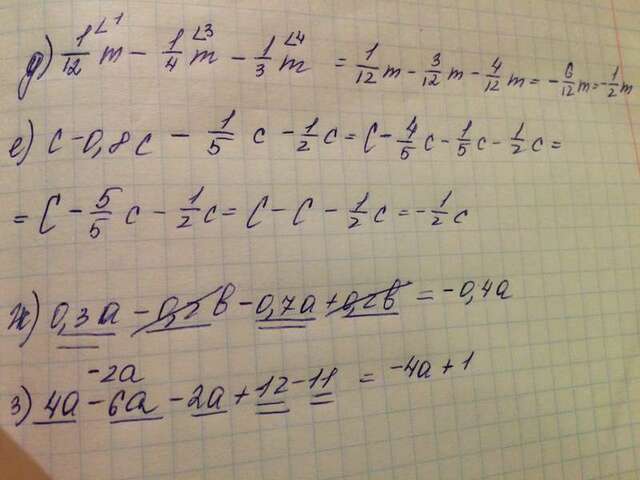 д) 1/12 m - 1/4 m - 1/3 m = 1/12 m - 3/12 m - 4/12 m = -6/12 m = -1/2 m
е) c - 0,8c - 1/5 c - 1/2 c = c - 4/5 c - 1/5 c - 1/2 c =
= c - 5/5 c - 1/2 c = c - c - 1/2 c = -1/2 c
ж) 0,3a - 0,2b - 0,7a + 0,2b = -0,4a
-2a
з) 4a - 6a - 2a + 12 - 11 = -4a + 1